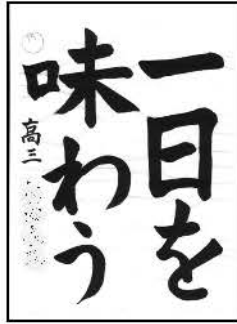 一日を
味わう
高三